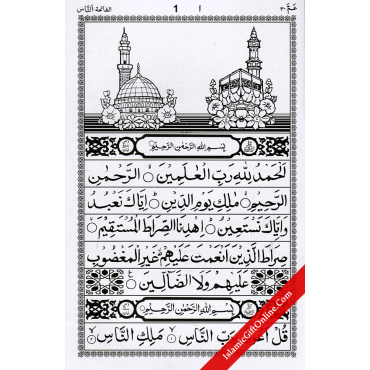 الفاتحة النَّاس 1 ا عمّ ٣٠
بِسْمِ اللهِ الرَّحْمٰنِ الرَّحِيْمِ
اَلْحَمْدُ لِلّٰهِ رَبِّ الْعٰلَمِيْنَ ۙ الرَّحْمٰنِ
الرَّحِيْمِ ۙ مٰلِكِ يَوْمِ الدِّيْنِ ؕ اِيَّاكَ نَعْبُدُ
وَاِيَّاكَ نَسْتَعِيْنُ ؕ اِهْدِنَا الصِّرَاطَ الْمُسْتَقِيْمَ ۙ
صِرَاطَ الَّذِيْنَ اَنْعَمْتَ عَلَيْهِمْ ۙ غَيْرِ الْمَغْضُوْبِ
عَلَيْهِمْ وَلَا الضَّآلِّيْنَ
بِسْمِ اللهِ الرَّحْمٰنِ الرَّحِيْمِ
قُلْ اَعُوْذُ بِرَبِّ النَّاسِ ۙ مَلِكِ النَّاسِ ۙ
IslamicGiftOnline.Com